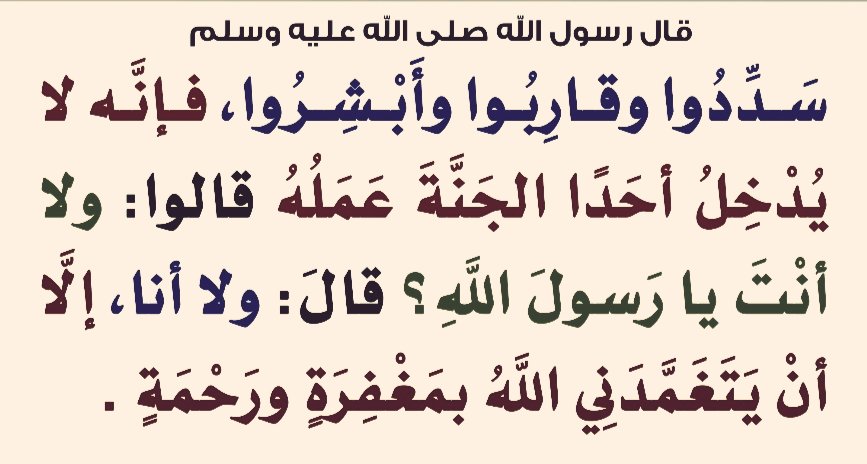 قال رسول الله صلى الله عليه وسلم
سَدِّدُوا وقارِبُوا وأَبْشِرُوا، فإنَّه لا
يُدْخِلُ أحَدًا الجَنَّةَ عَمَلُهُ قالوا: ولا
أنْتَ يا رَسولَ اللَّهِ؟ قالَ: ولا أنا، إلَّا
أنْ يَتَغَمَّدَنِي اللَّهُ بمَغْفِرَةٍ ورَحْمَةٍ .